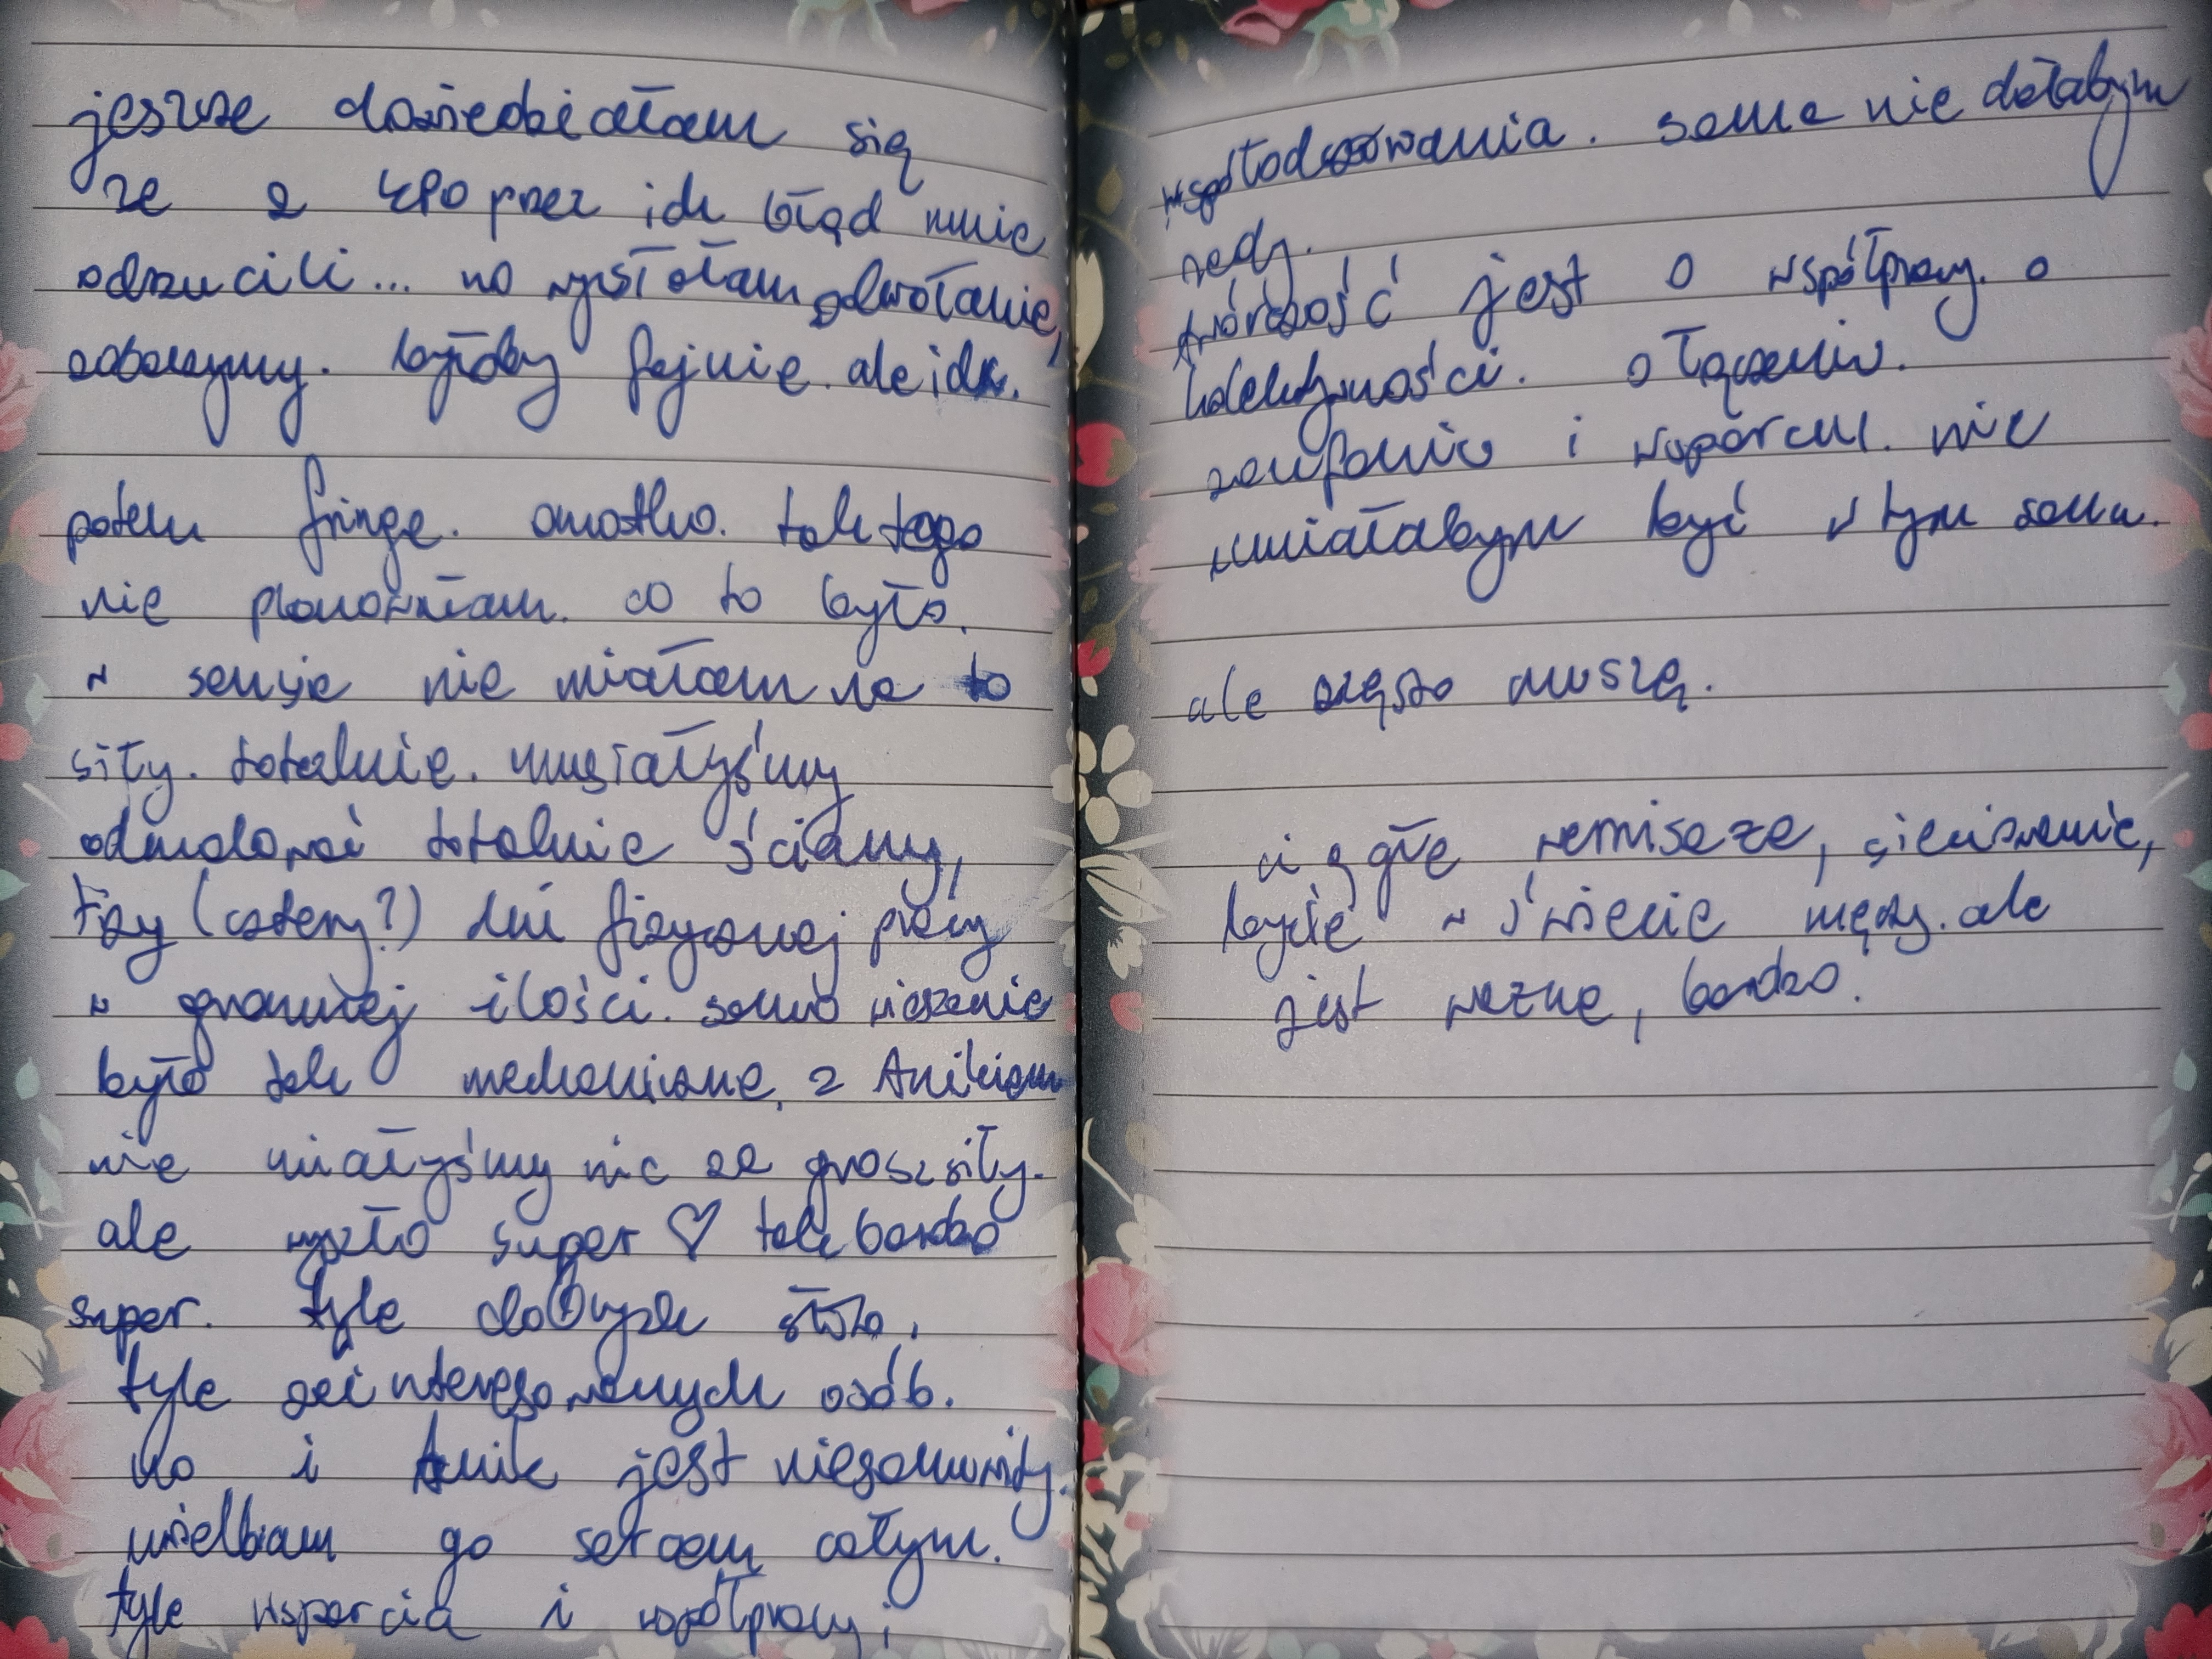 jeszcze dowiedziałam się
że z KPO przez ich błąd mnie
odrzucili... no wysłałam odwołanie,
zobaczymy. byłoby fajnie. ale idk.
potem fringe. omatko. tak tego
nie planowałam. co to było.
w sensie nie miałam na to
siły. totalnie. musiałyśmy
odmalować totalnie ściany,
trzy (cztery?) dni fizycznej pracy
w ogromnej ilości. samo wieszanie
było tak mechaniczne, z Anikiem
nie miałyśmy nic za grosz siły.
ale wyszło super ♡ tak bardzo
super. tyle dobrych słów.
tyle zainteresowanych osób.
no i Anik jest niesamowity.
uwielbiam go sercem całym.
tyle wsparcia i współpracy i
współodczuwania. sama nie dałabym
rady.
twórczość jest o współpracy. o
kolektywności. o łączeniu.
zaufaniu i wsparciu. nie
umiałabym być w tym sama.
ale często muszę.
ciągłe wernisaże,
bycie w świecie męczy. ale
jest ważne, bardzo.